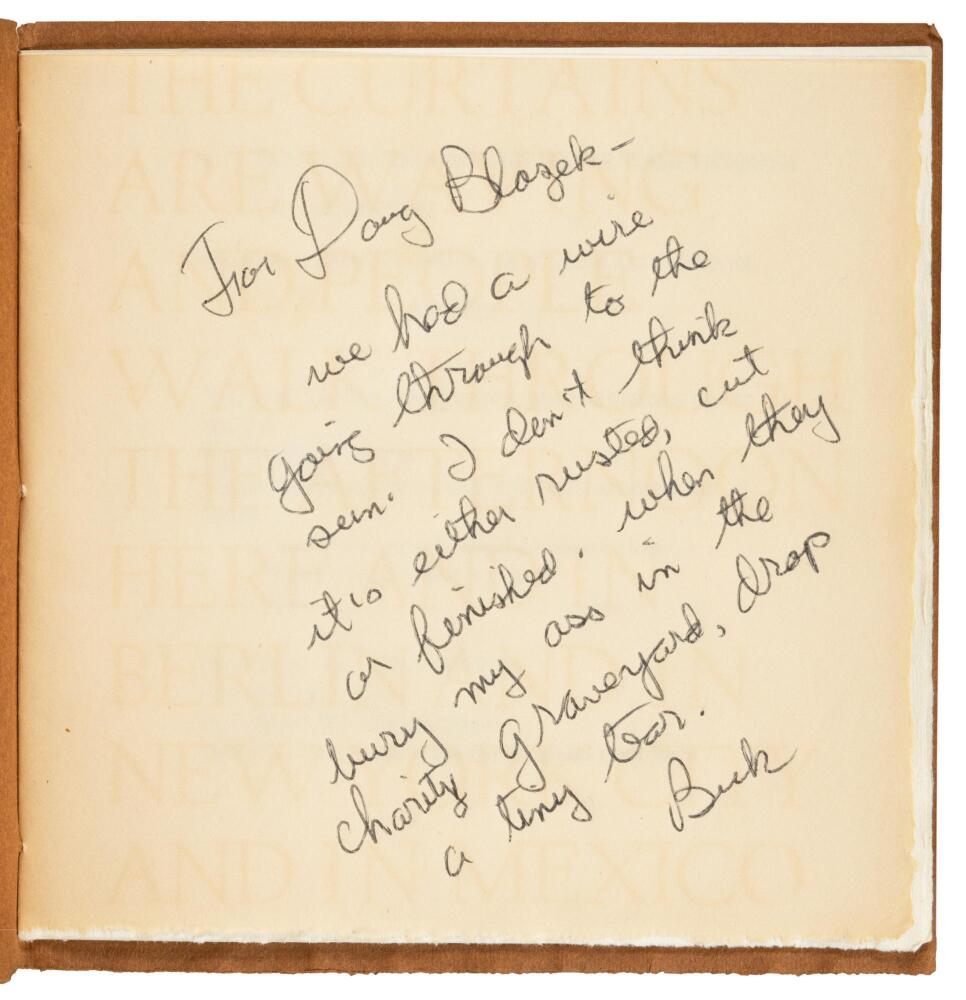 For Doug Blazek-
we had a wire
going through to the
sun. I don't think
it's either rusted, cut
or finished. when they
bury my ass in the
charity graveyard, drop
a tiny tear.
Buk
THE CURTAINS
ARE WAVING
AND PEOPLE
WALK THROUGH
THE AFTERNOON
HERE AND IN
BERLIN AND IN
NEW YORK CITY
AND IN MEXICO